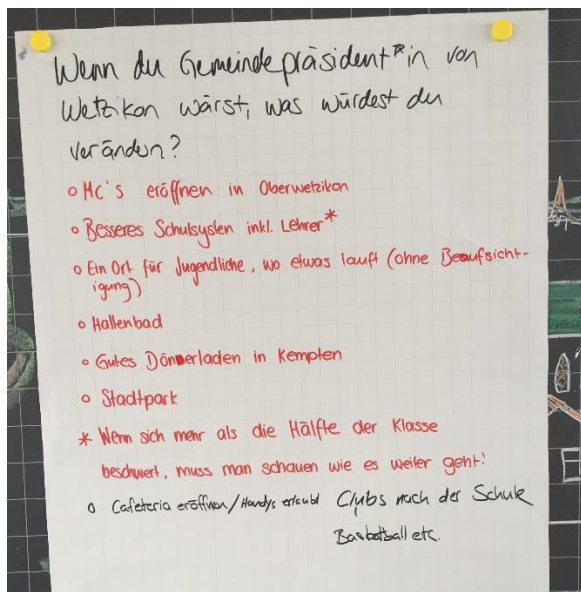 Wenn du Gemeindepräsident*in von
Wetzikon wärst, was würdest du
verändern?
o Mc's eröffnen in Oberwetzikon
o Besseres Schulsystem inkl. Lehrer*
o Ein Ort für Jugendliche, wo etwas lauft (ohne Beaufsicht-
igung)
o Hallenbad
o Gutes Dönerladen in Kempten
o Stadtpark
* Wenn sich mehr als die Hälfte der Klasse
beschwert, muss man schauen wie es weiter geht!
o Cafeteria eröffnen/Handys erlaubt Clubs nach der Schule
Basketball etc.